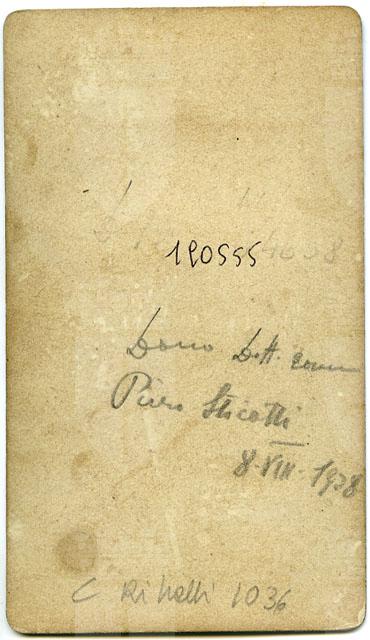 190555
Dono Dott. comm
Piero Sticotti
8-VIII-1928
C Rihelli 1036